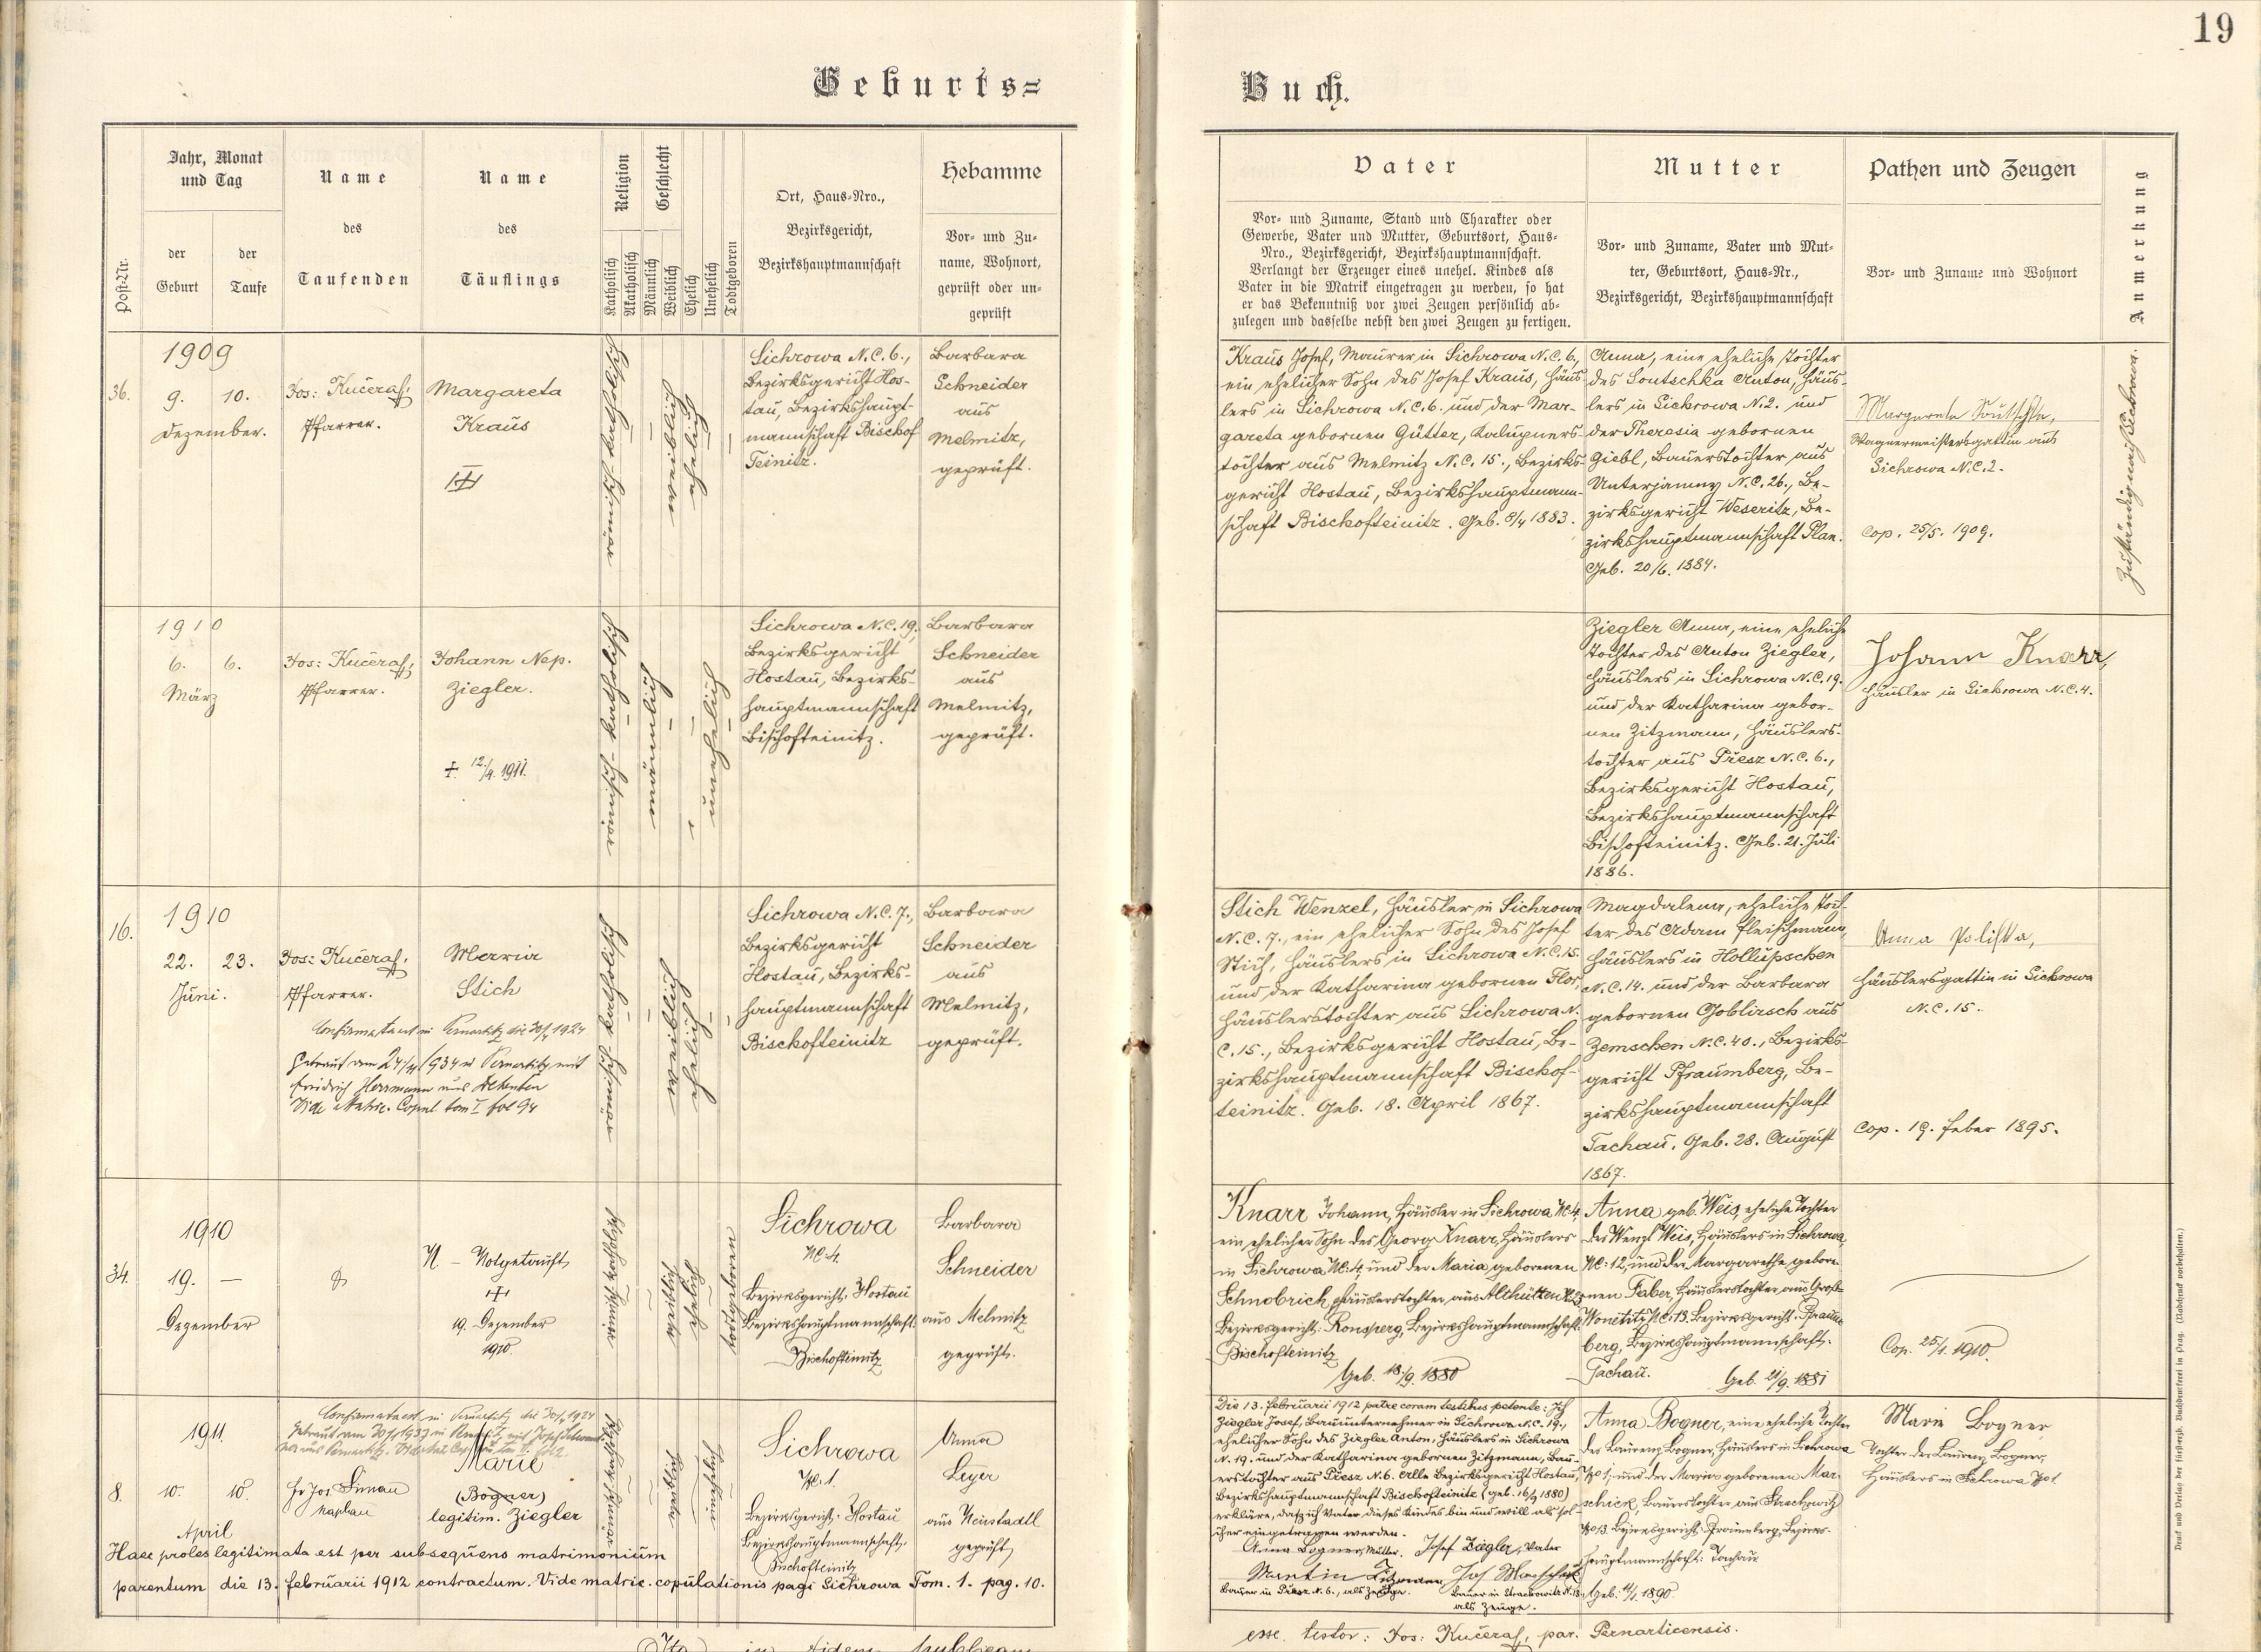 19
Geburts=
Buch.
Post-Nr.
Jahr, Monat
und Tag
der
Geburt
der
Taufe
Name
des
Taufenden
Name
des
Täuflings
Religion
Katholisch
Akatholisch
Geschlecht
Männlich
Weiblich
Ehelich
Unehelich
Todtgeboren
Ort, Haus-Nro.,
Bezirksgericht,
Bezirkshauptmannschaft
Hebamme
Vor- und Zu-
name, Wohnort,
geprüft oder un-
geprüft
Vater
Vor- und Zuname, Stand und Charakter oder
Gewerbe, Vater und Mutter, Geburtsort, Haus-
Nro., Bezirksgericht, Bezirkshauptmannschaft.
Verlangt der Erzeuger eines unehel. Kindes als
Vater in die Matrik eingetragen zu werden, so hat
er das Bekenntniß vor zwei Zeugen persönlich ab-
zulegen und dasselbe nebst den zwei Zeugen zu fertigen.
Mutter
Vor- und Zuname, Vater und Mut-
ter, Geburtsort, Haus-Nr.,
Bezirksgericht, Bezirkshauptmannschaft
Pathen und Zeugen
Vor- und Zuname und Wohnort
Anmerkung
36.
1909
9. 10.
Dezember.
Jos: Kučeraß,
Pfarrer.
Margareta
Kraus
römisch-katholisch
weiblich
ehelich
Sichrowa N.C. 6.,
Bezirksgericht Hos-
tau, Bezirkshaupt-
mannschaft Bischof
Teinitz.
Barbara
Schneider
aus
Melmitz,
geprüft.
Kraus Josef, Maurer in Sichrowa N.C. 6.,
ein ehelicher Sohn des Josef Kraus, Häus-
lers in Sichrowa N.C. 6. und der Mar-
gareta gebornen Gütter, Kalupners-
tochter aus Melmitz N.C. 15., Bezirks-
gericht Hostau, Bezirkshauptmann-
schaft Bischofteinitz. Geb. 8/4 1883.
Anna, eine eheliche Tochter
des Soutschka Anton, Häus-
lers in Sichrowa N. 2. und
der Theresia gebornen
Giebl, Bauerstochter aus
Unterjamny N.C. 26., Be-
zirksgericht Weseritz, Be-
zirkshauptmannschaft Plan.
Geb. 20/6. 1884.
Margareta Soutschka,
Wagnermeistersgattin aus
Sichrowa N.C. 2.
Cop. 25/5. 1909.
Zuständig nach Sichrowa.
1910
6. 6.
März
Jos: Kučeraß,
Pfarrer.
Johann Nep.
Ziegler.
+ 12./4. 1911.
römisch-katholisch
männlich
unehelich
Sichrowa N.C. 19,
Bezirksgericht
Hostau, Bezirks-
hauptmannschaft
Bischofteinitz.
Barbara
Schneider
aus
Melmitz,
geprüft.
Ziegler Anna, eine eheliche
Tochter des Anton Ziegler,
Häuslers in Sichrowa N.C. 19.
und der Katharina gebor-
nen Zitzmann, Häuslers-
tochter aus Přesz N.C. 6.,
Bezirksgericht Hostau,
Bezirkshauptmannschaft
Bischofteinitz. Geb. 21. Juli
1886.
Johann Knarr,
Häusler in Sichrowa N.C. 4.
16.
1910
22. 23.
Juni.
Jos: Kučeraß,
Pfarrer.
Maria
Stich
Confirmata est in Pernartitz die 30/7 1924
Getraut am 24/4 1934 in Pernartitz mit
Friedrich Herrmann aus
Vide Matric. Copul tom I fol 94
römisch katholisch
weiblich
ehelich
Sichrowa N.C. 7.,
Bezirksgericht
Hostau, Bezirks-
hauptmannschaft
Bischofteinitz
Barbara
Schneider
aus
Melmitz,
geprüft.
Stich Wenzel, Häusler in Sichrowa
N.C. 7., ein ehelicher Sohn des Josef
Stich, Häuslers in Sichrowa N.C. 15.
und der Katharina gebornen Flor,
Häuslerstochter aus Sichrowa N.
C. 15., Bezirksgericht Hostau, Be-
zirkshauptmannschaft Bischof-
teinitz. Geb. 18. April 1867.
Magdalena, eheliche Toch-
ter des Adam Fleischmann,
Häuslers in Hollupschen
N.C. 14. und der Barbara
gebornen Goblirsch aus
Zemschen N.C. 40., Bezirks-
gericht Pfraumberg, Be-
zirkshauptmannschaft
Tachau. Geb. 28. August
1867.
Anna Polifka,
Häuslersgattin in Sichrowa
N.C. 15.
Cop. 19. Feber 1895.
34.
1910
19. —
Dezember
N – Notgetauft
+
19. Dezember
1910
römisch katholisch
weiblich
ehelich
todtgeboren
Sichrowa
NC: 4.
Bezirksgericht: Hostau
Bezirkshauptmannschaft:
Bischofteinitz
Barbara
Schneider
aus Melmitz
geprüft.
Knarr Johann, Häusler in Sichrowa NC: 4,
ein ehelicher Sohn des Georg Knarr, Häuslers
in Sichrowa NC: 4, und der Maria geborenen
Schnobrich Häuslerstochter aus Althütten
Bezirksgericht: Ronsperg, Bezirkshauptmannschaft:
Bischofteinitz
Geb. 18./9. 1880
Anna geb. Weis, eheliche Tochter
des Wenzl Weis, Häuslers in Sichrowa,
NC: 12, und der Margarethe gebore-
nen Faber, Häuslerstochter aus Groß-
Wonetitz NC: 13. Bezirksgericht: Pfraum-
berg, Bezirkshauptmannschaft:
Tachau. Geb. 21/9. 1881
Cop. 25/1. 1910.
8.
1911.
10. 10.
April
Confirmata est in Pernartitz die 30/7 1924
Getraut am 30/5 1933 in
Jos. Simon
Kaplan
Marie
(Bogner)
legitim. Ziegler
römisch katholisch
weiblich
unehelich
Sichrowa
NC: 1.
Bezirksgericht: Hostau
Bezirkshauptmannschaft:
Bischofteinitz
Anna
Leyer
aus Neustadtl
geprüft
Haec proles legitimata est per subsequens matrimonium
parentum die 13. februarii 1912 contractum. Vide matric. copulationis pagi Sichrowa Tom. 1. pag. 10.
Die 13. februarii 1912 patre coram testibus petente: Ich
Ziegler Josef, Bauunternehmer in Sichrowa N.C. 19.,
ehelicher Sohn des Ziegler Anton, Häuslers in Sichrowa
N. 19. und der Katharina gebornen Zitzmann, Bau-
erstochter aus Přesz N. 6. alle Bezirksgericht Hostau,
Bezirkshauptmannschaft Bischofteinitz (geb. 16/9 1880)
erkläre, daß ich Vater dieses Kindes bin und will als sol-
cher eingetragen werden.
Anna Bogner, Mutter. Josef Ziegler, Vater
Martin Zitzmann, Jos Marschick
Bauer in Přesz N. 6., als Zeuge. Bauer in Strachowitz N. 13
als Zeuge.
Anna Bogner, eine eheliche Tochter
des Laurenz Bogner, Häuslers in Sichrowa
No 1, und der Maria geborenen Mar-
schick, Bauerstochter aus Strachowitz
No 13. Bezirksgericht Pfraumberg, Bezirks-
hauptmannschaft: Tachau
Geb. 4/1. 1890.
Marie Bogner
Tochter des Laurenz Bogner,
Häuslers in Sichrowa No 1.
esse testor: Jos: Kučeraß, par. Pernarticensis.
Druck und Verlag der fürsterzb. Buchdruckerei in Prag. (Nachdruck vorbehalten.)